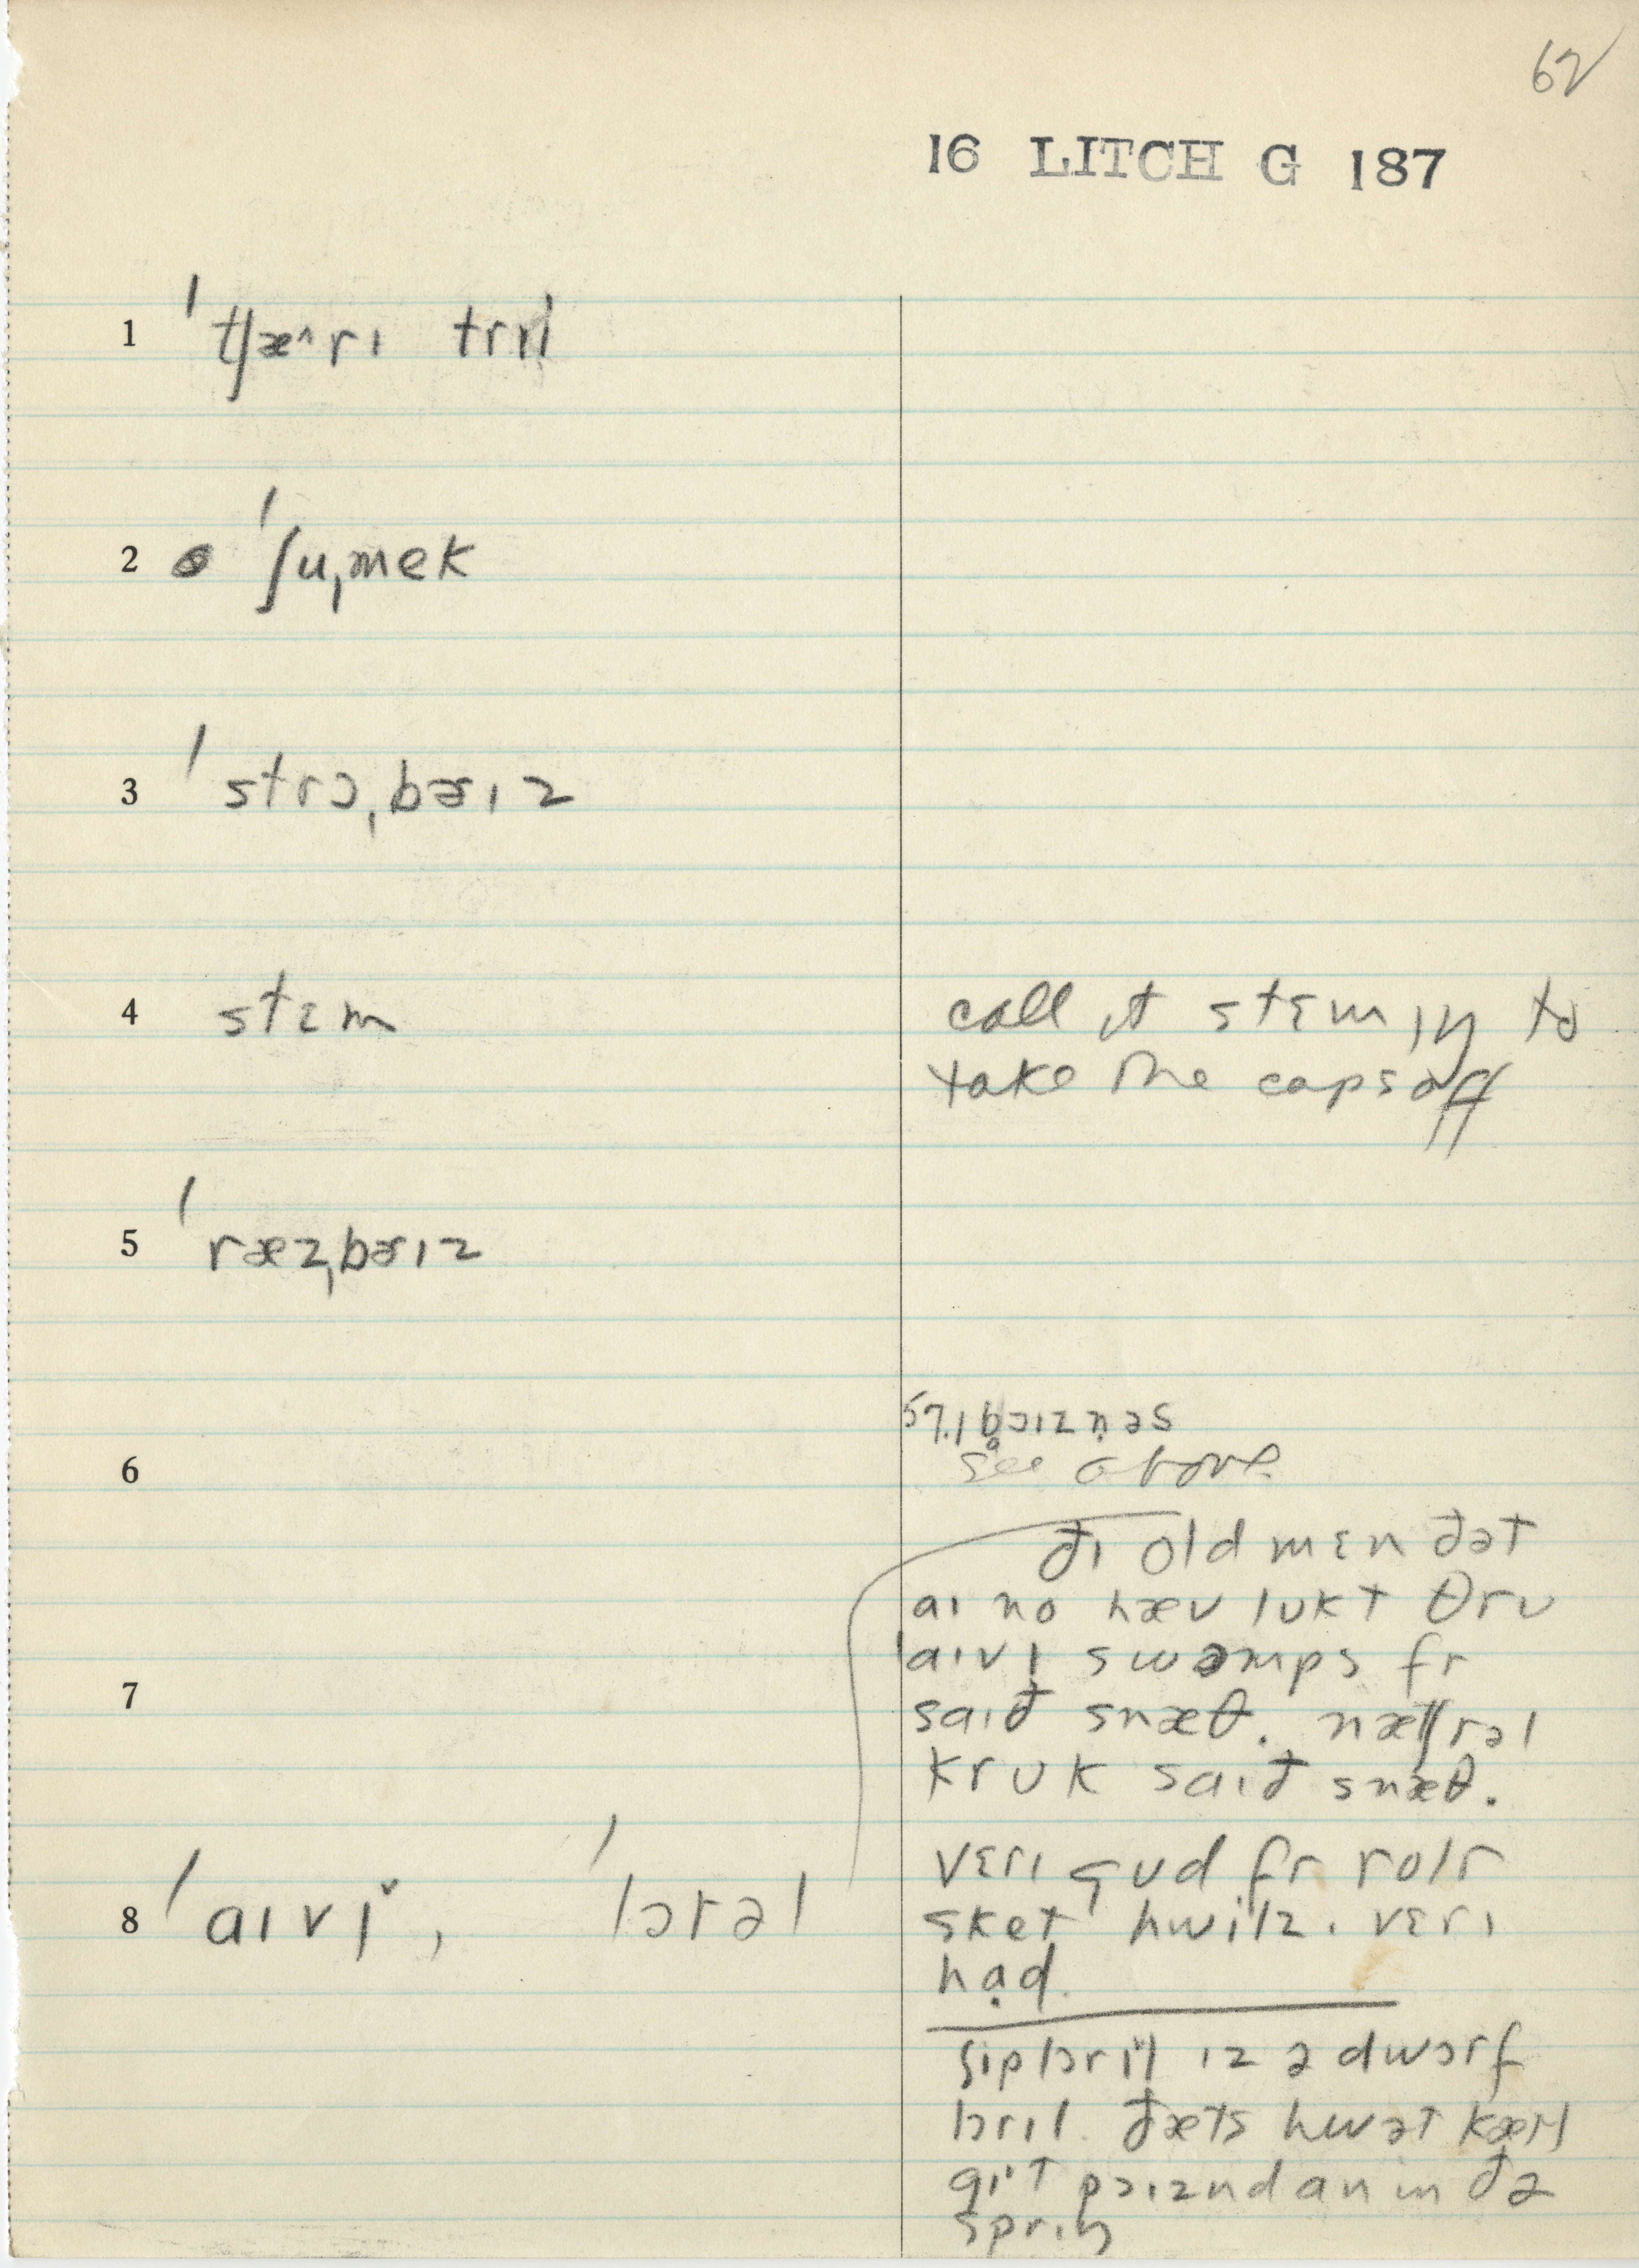 62
16 LITCH G 187
1 ˈtʃæ^rɪ tri
2 ˈʃuˌmek
3 ˈstrɔˌbɚɪz
4 stɛm
call it stɛmɪŋ to
take the caps off
5 ˈræzˌbɚɪz
see above
6
ðɪ old mɛn ðət
aɪ no hæv lʊkt θru
7
ˈaɪvɪ swɔmps fr
saɪð snæθ. nætʃrəl
krʊk saɪð snæθ.
vɛrɪ gʊd fr rolr
8 ˈaɪvɪˇ, ˈlɔrəl
sket hwilz. vɛrɪ
hạd.
ʃiplɔrɪl ɪz ə dwɔrf
lɔrɪl. ðæts hwət kætl
gɪt pɔɪznd an ɪn ðə
sprɪŋ